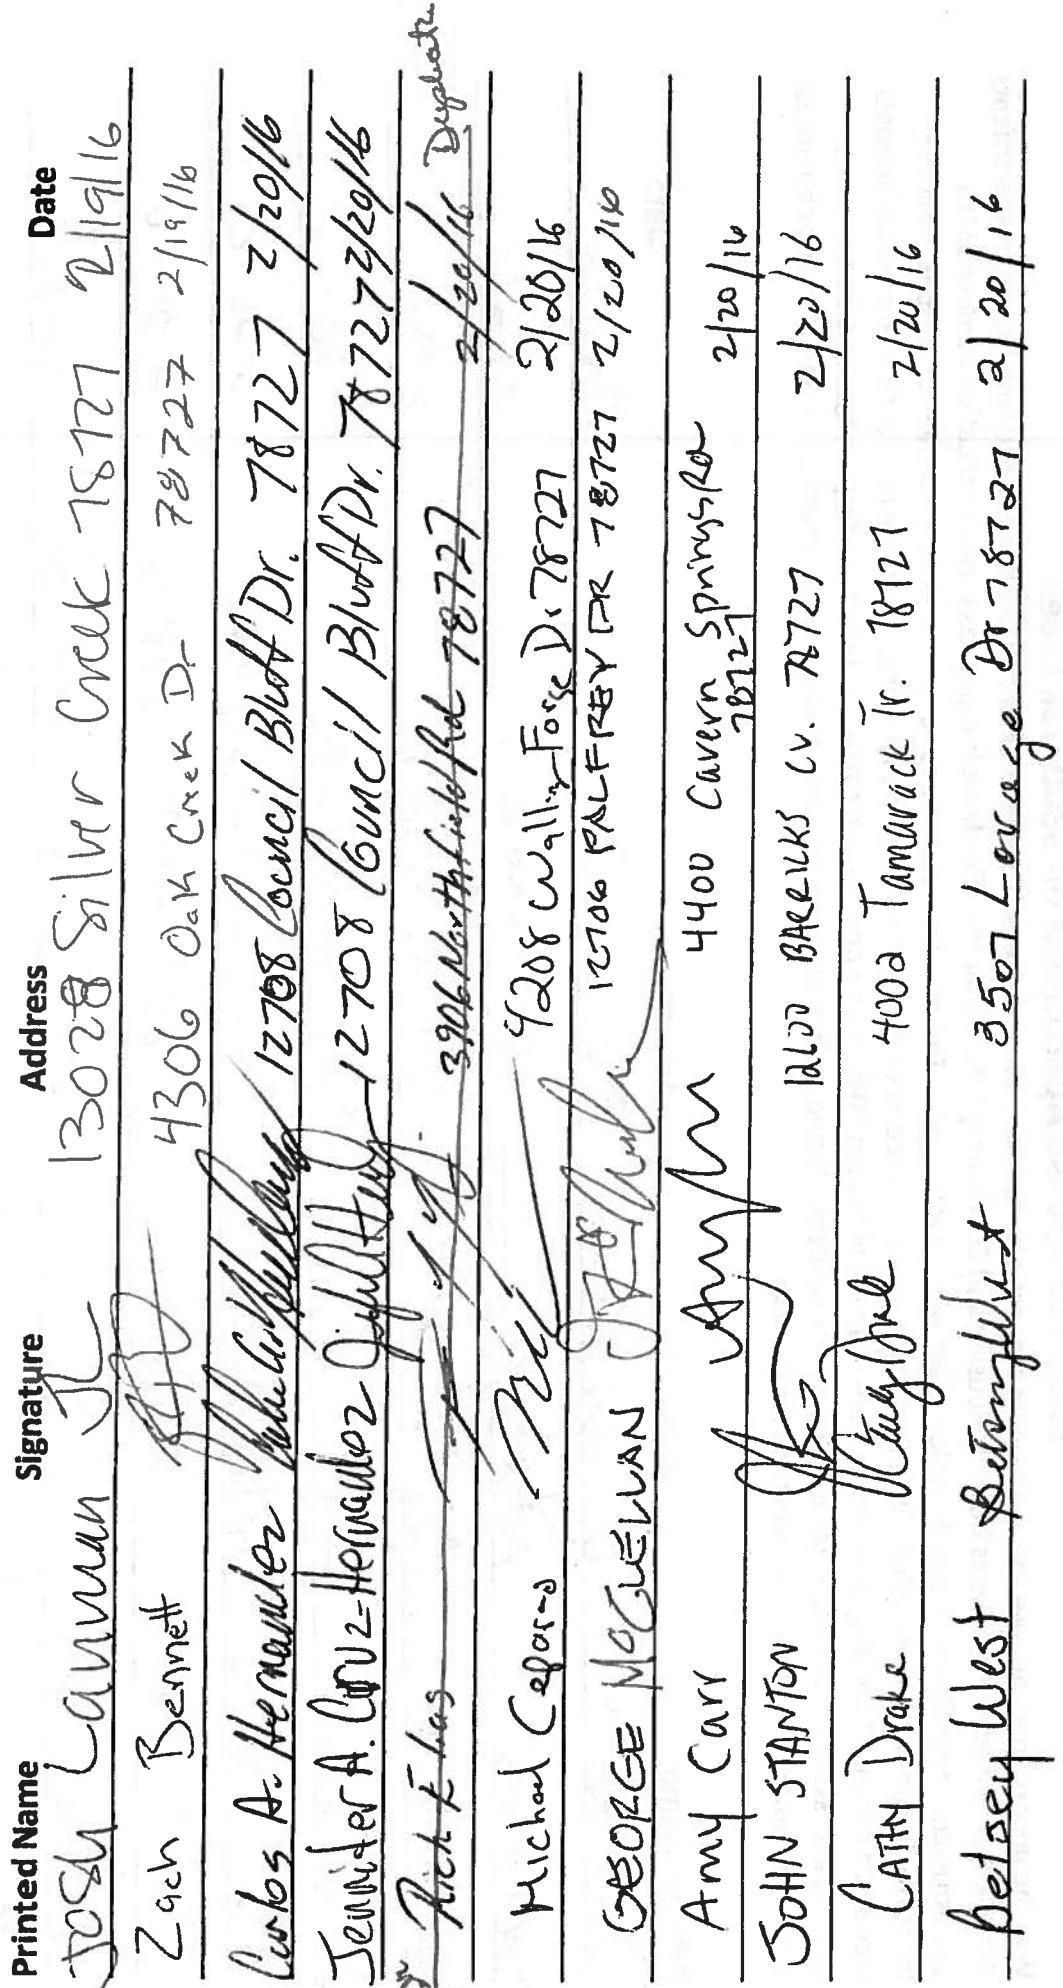 Printed Name Signature Address Date
Josh Lanman 13028 Silver Creek 78727 2/19/16
Zach Bennett 4306 Oak Creek Dr 78727 2/19/16
Carlos A. Hernandez 12708 Council Bluff Dr. 78727 2/20/16
Jennifer A. Cruz-Hernandez 12708 Council Bluff Dr. 78727 2/20/16
Rich Elias 3906 Northfield Rd 78727 2/20/16 Duplicate
Michael 4208 Walling Forge Dr 78727 2/20/16
GEORGE McCLELLAN 12706 PALFREY DR 78727 2/20/16
Amy Carr 4400 Cavern Springs Rd 2/20/16
78727
JOHN STANTON 12600 BARRICKS CV. 78727 2/20/16
CATHY Drake Cathy Drake 4002 Tamarack Tr. 78727 2/20/16
Betsey West Betsey West 3507 Lorage Dr 78727 2/20/16